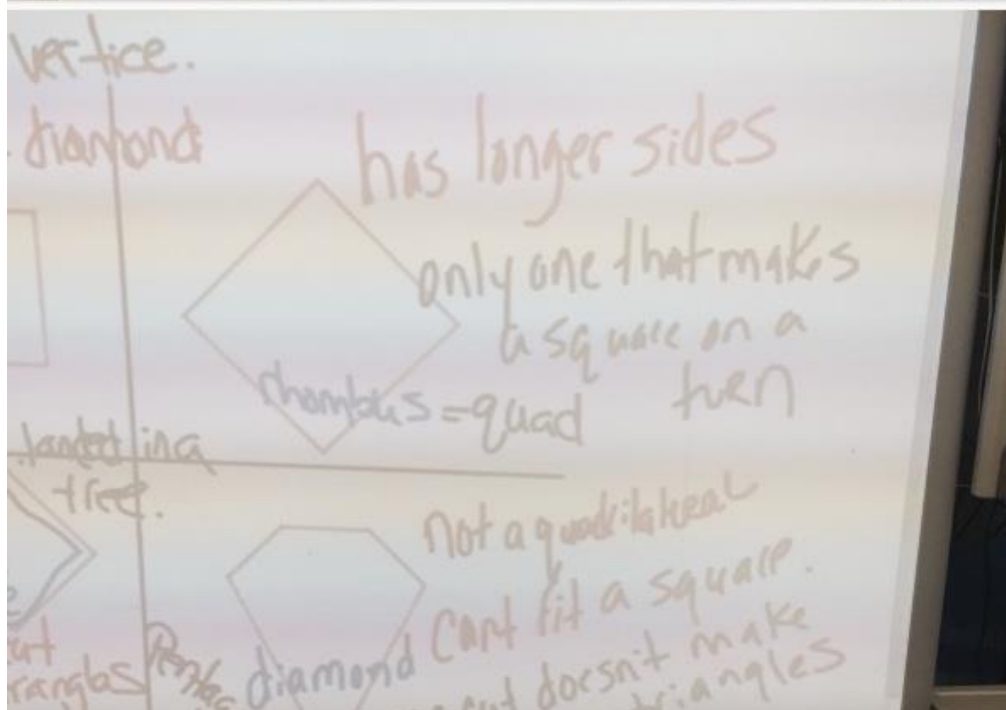 vertice.
diamond
has longer sides
only one that makes
a square on a
turn
rhombus = quad
landed in a
tree.
not a quadrilateral
Cant fit a square.
diamond
doesn't make
triangles